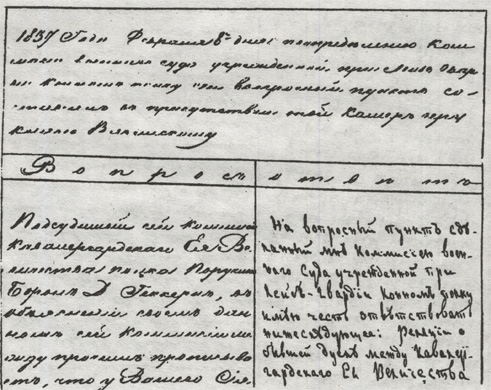 1837 Года Февраля 8 дня по определению Ком
миссии военного суда учрежденной при Лейб Гвар
дии Конном полку сей вопросный пунктъ со
ставленъ въ присутствии той Камеръ юнкеру
князю Вяземскому
Вопросъ
ответъ
Подсудимый сей Коммиссии
Кавалергардскаго Ея Ве
личества полка Поручикъ
Баронъ Д Гекеренъ, въ
объяснении своемъ дан
номъ сей Коммиссии ме
жду прочимъ прописыва
етъ, что у Вашего Сия
На вопросный пунктъ сдѣ
ланный мнѣ Коммисіею воен
наго Суда учрежденной при
Лейбъ-Гвардіи Конномъ полку
имѣю честь отвѣтствовать
нижеслѣдующее: Реляціи о
бывшей дуэлѣ между Кавалер
гардскаго Ея Величества